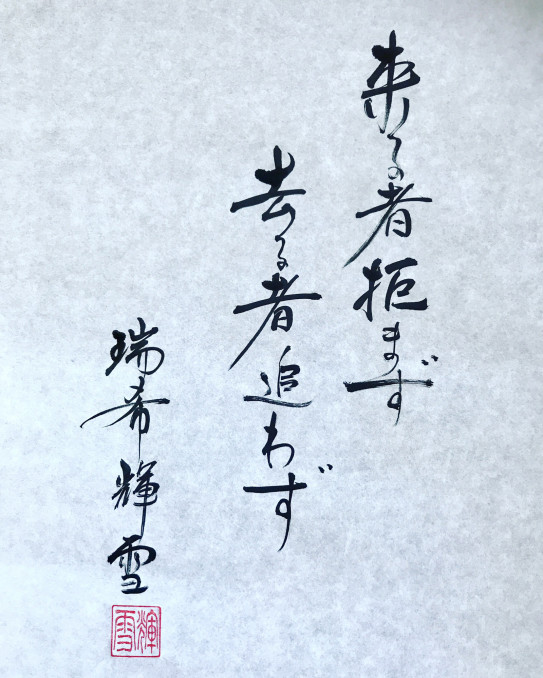 来る者拒まず
去る者追わず
瑞希輝雪
輝雪